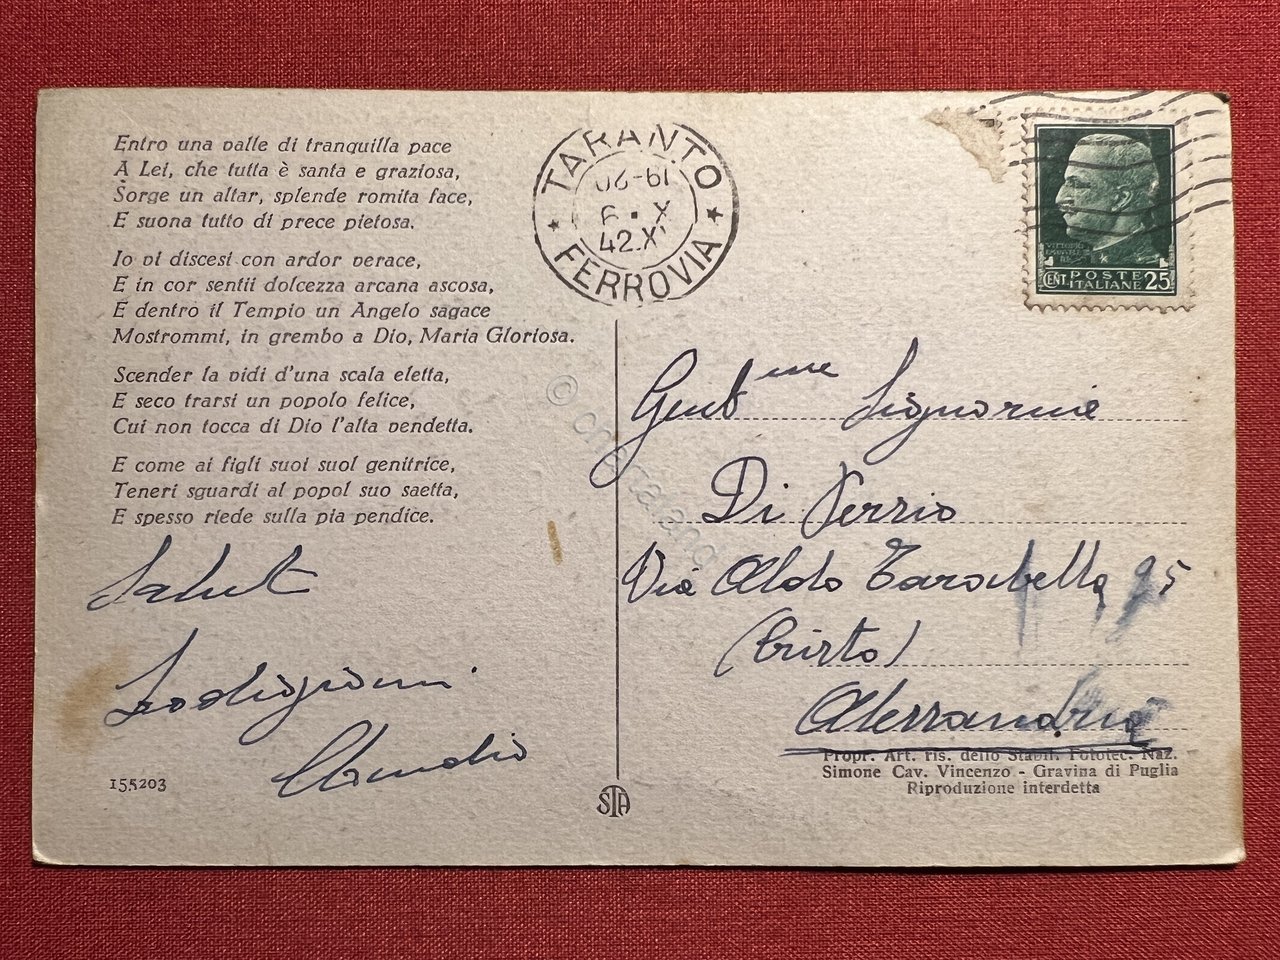 Entro una valle di tranquilla pace
A Lei, che tutta è santa e graziosa,
Sorge un altar, splende romita face,
E suona tutto di prece pietosa.
Io vi discesi con ardor verace,
E in cor sentii dolcezza arcana ascosa,
E dentro il Tempio un Angelo sagace
Mostrommi, in grembo a Dio, Maria Gloriosa.
Scender la vidi d'una scala eletta,
E seco trarsi un popolo felice,
Cui non tocca di Dio l'alta vendetta.
E come ai figli suoi suol genitrice,
Teneri sguardi al popol suo saetta,
E spesso riede sulla pia pendice.
Claudio
155203
TARANTO
19-20
6·X
42.X
FERROVIA
VITTORIO
CENT. POSTE 25
ITALIANE
Gent.me Signorine
Di
Via Aldo
(Cristo)
Alessandria
Propr. Art. ris. dello Stabil. Fototec. Naz.
Simone Cav. Vincenzo - Gravina di Puglia
Riproduzione interdetta
STA